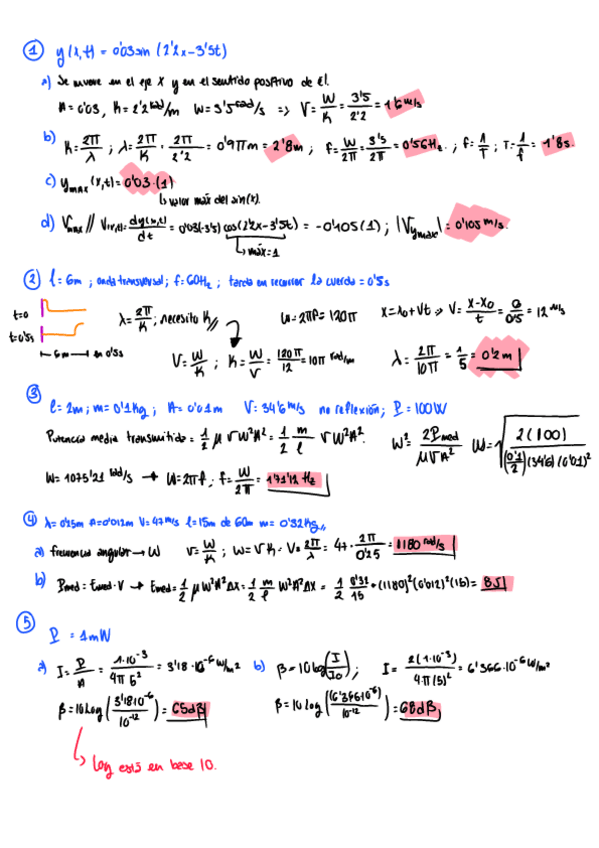 ① y(x,t) = 0'03 sin (2'2x-3'5t)
a) Se mueve en el eje X y en el sentido positivo de él.
A = 0'03, K = 2'2 rad/m W = 3'5 rad/s => V = W/K = 3'5/2'2 = 1'6 m/s
b) K = 2π/λ ; λ = 2π/K · 2π/2'2 = 0'9πm = 2'8m ; f = W/2π = 3'5/2π = 0'56Hz ; f = 1/T ; T = 1/f = 1'8s.
c) y max (x,t) = 0'03·(1)
↳ valor máx del sin(x).
d) Vmax // V(x,t) = dy(x,t)/dt = 0'03(-3'5) cos(2'2x-3'5t) = -0'105(1) ; |Vymax| = 0'105 m/s.
↳ máx = 1
② l = 6m ; onda transversal ; f = 60Hz ; tarda en recorrer la cuerda = 0'5s
t=0
t=0'5s
6m en 0'5s
λ = 2π/K ; necesito K // W = 2πf = 120π X = X0 + Vt => V = X-X0/t = 6/0'5 = 12 m/s
V = W/K ; K = W/V = 120π/12 = 10π rad/m λ = 2π/10π = 1/5 = 0'2m
③ l = 2m ; m = 0'1Kg ; A = 0'01m V = 34'6 m/s no reflexión ; P = 100W
Potencia media transmitida = 1/2 μ V W²A² = 1/2 m/l V W²A². W² = 2Pmed/μVA² W = √(2(100)/(0'1/2)(34'6)(0'01)²)
W = 1075'21 rad/s → W = 2πf ; f = W/2π = 171'12 Hz
④ λ = 0'25m A = 0'012m V = 47 m/s l = 15m de 60m m = 0'32Kg //
a) frecuencia angular → W V = W/K ; W = V·K = V·2π/λ = 47·2π/0'25 = 1180 rad/s
b) Pmed = Emed·V → Emed = 1/2 μ W²A²Δx = 1/2 m/l W²A²Δx = 1/2 0'32/15 ·(1180)²(0'012)²(15) =
⑤ P = 1mW
a) I = P/A = 1·10⁻³/4π5² = 3'18·10⁻⁶ W/m² b) β = 10 log(I/I0) ; I = 2(1·10⁻³)/4π(5)² = 6'366·10⁻⁶ W/m²
β = 10 Log(3'18·10⁻⁶/10⁻¹²) = 65dβ β = 10 Log((6'366·10⁻⁶)/10⁻¹²) = 68dβ
↳ log está en base 10.